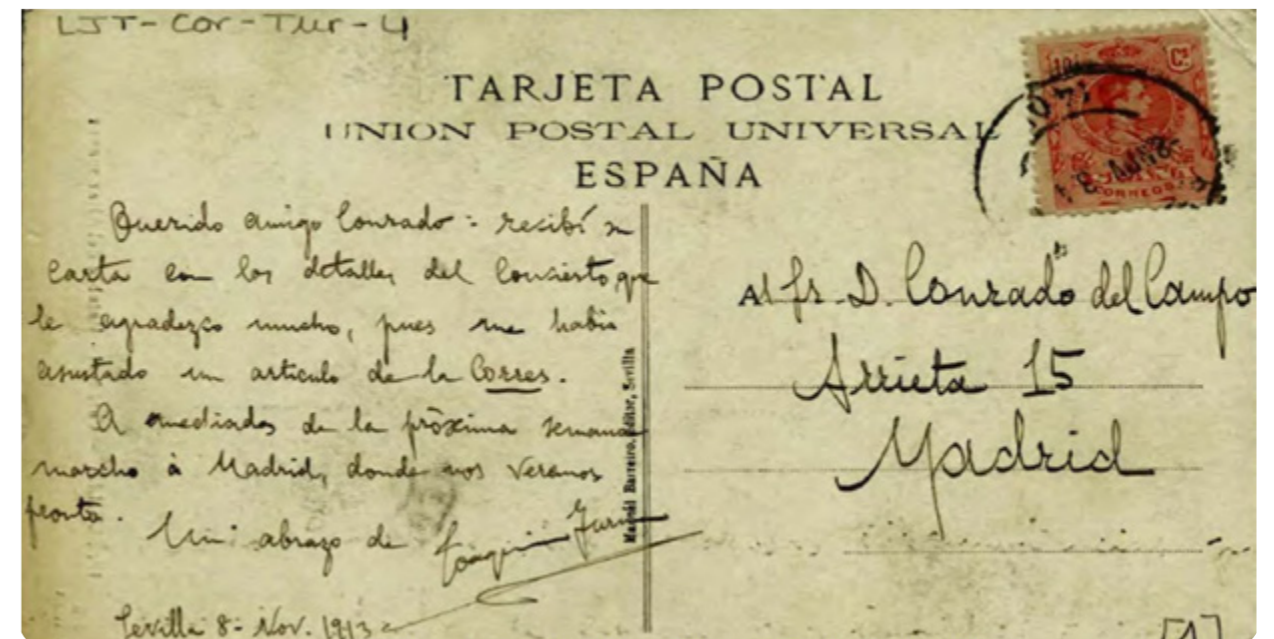 LJT-Cor-Tur-4
TARJETA POSTAL
UNION POSTAL UNIVERSAL
ESPAÑA
Querido amigo Conrado: recibí su
carta con los detalles del Concierto, que
le agradezco mucho, pues me había
asustado un artículo de la Corres.
A mediados de la próxima semana
marcho á Madrid, donde nos veremos
pronto.
Un abrazo de Joaquín Turina
Sevilla 8- Nov. 1913
Manuel Barreiro, Editor, Sevilla
Al Sr. D. Conrado del Campo
Arrieta 15
Madrid
CORREOS
[1]